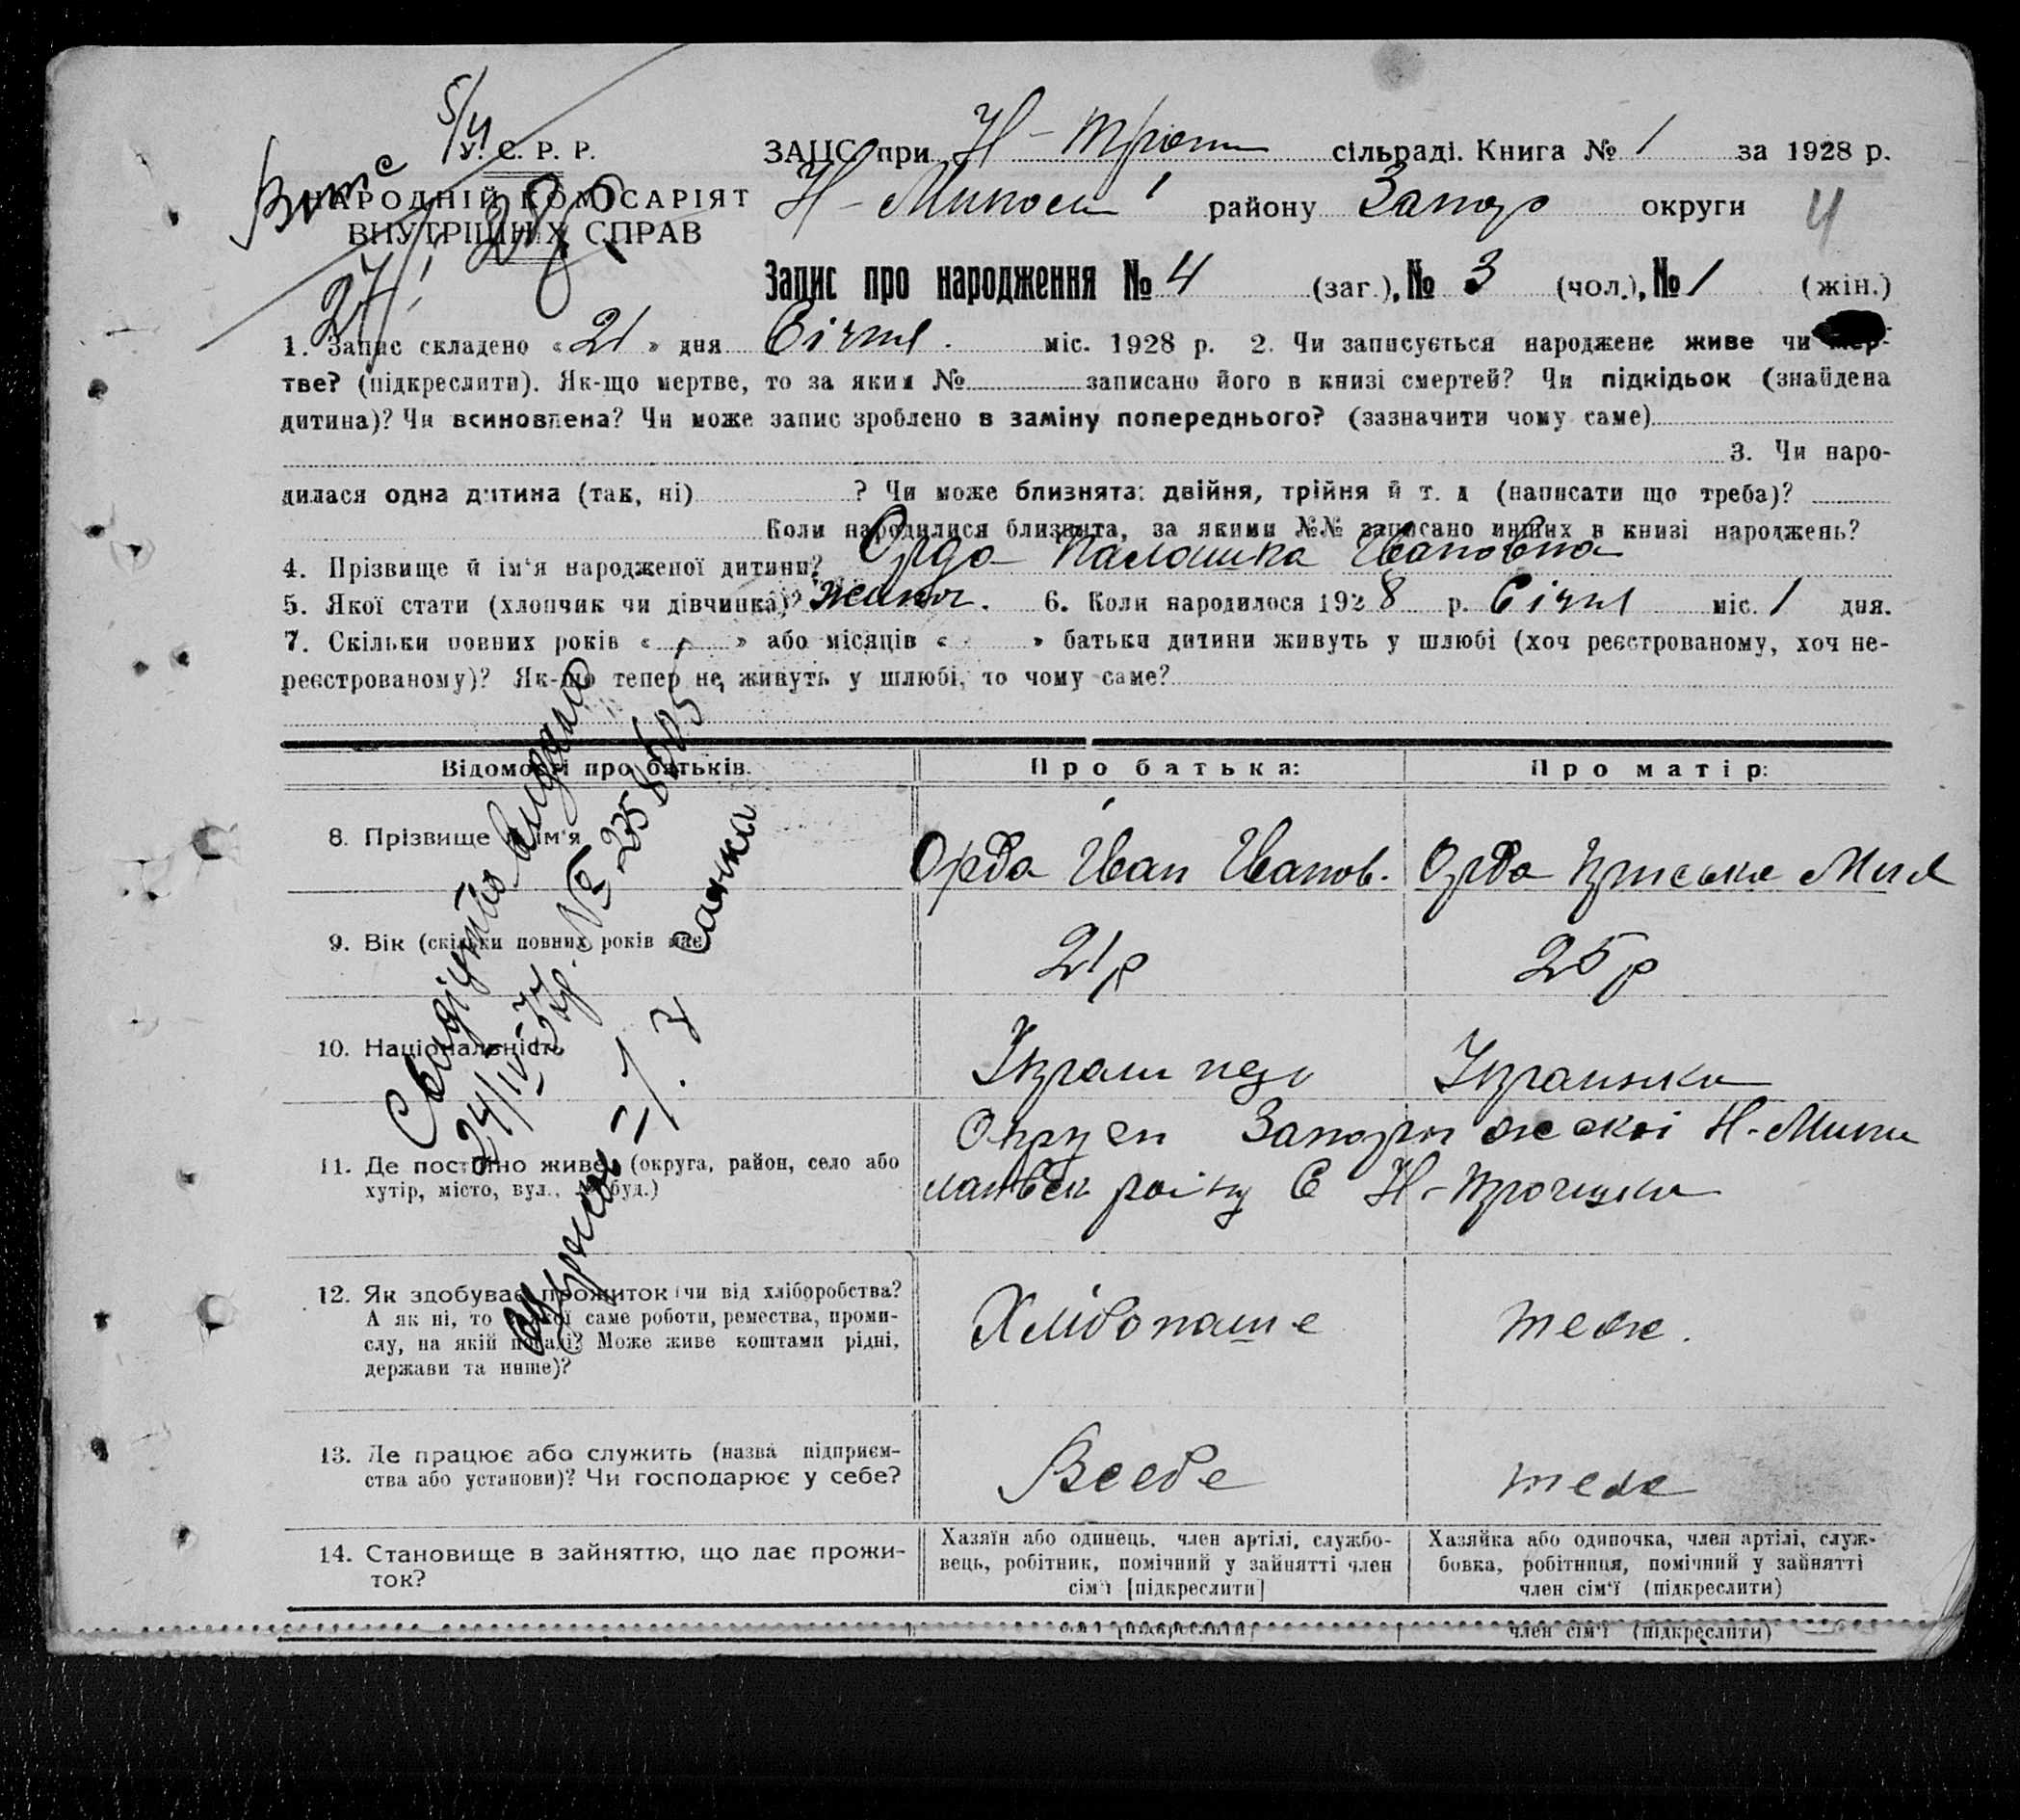 У. С. Р. Р.
НАРОДНІЙ КОМІСАРІЯТ
ВНУТРІШНІХ СПРАВ
ЗАЦС при Н- сільраді. Книга № 1 за 1928 р.
району Запор округи 4
Запис про народження № 4 (заг.), № 3 (чол.), № 1 (жін.)
1. Запис складено «21» дня Січня міс. 1928 р. 2. Чи записується народжене живе чи мер-
тве? (підкреслити). Як-що мертве, то за яким № записано його в книзі смертей? Чи підкідьок (знайдена
дитина)? Чи всиновлена? Чи може запис зроблено в заміну попереднього? (зазначити чому саме)
3. Чи наро-
дилася одна дитина (так, ні) ? Чи може близнята: двійня, трійня й т. д (написати що треба)?
Коли народилися близнята, за якими №№ записано инших в книзі народжень?
4. Прізвище й ім'я народженої дитини? Орда Палашка Івановна
5. Якої стати (хлопчик чи дівчинка)? жиноч. 6. Коли народилося 1928 р. Січня міс. 1 дня.
7. Скільки повних років « » або місяців « » батьки дитини живуть у шлюбі (хоч реєстрованому, хоч не-
реєстрованому)? Як-що тепер не живуть у шлюбі, то чому саме?
Відомості про батьків. Про батька: Про матір:
8. Прізвище й ім'я Орда Іван Іванов. Орда
9. Вік (скільки повних років має) 21 р 25 р
10. Національність
11. Де постійно живе (округа, район, село або
хутір, місто, вул., № буд.)
12. Як здобуває прожиток чи від хліборобства?
А як ні, то з якої саме роботи, ремества, проми-
слу, на якій посаді? Може живе коштами рідні,
держави та инше)?
Хлібопаше теж.
13. Де працює або служить (назва підприєм-
ства або установи)? Чи господарює у себе?
Всебе теж
14. Становище в зайняттю, що дає прожи-
ток?
Хазяїн або одинець, член артілі, службо-
вець, робітник, помічний у зайнятті член
сім'ї [підкреслити]
Хазяйка або одиночка, член артілі, служ-
бовка, робітниця, помічний у зайнятті
член сім'ї (підкреслити)
член сім'ї (підкреслити)